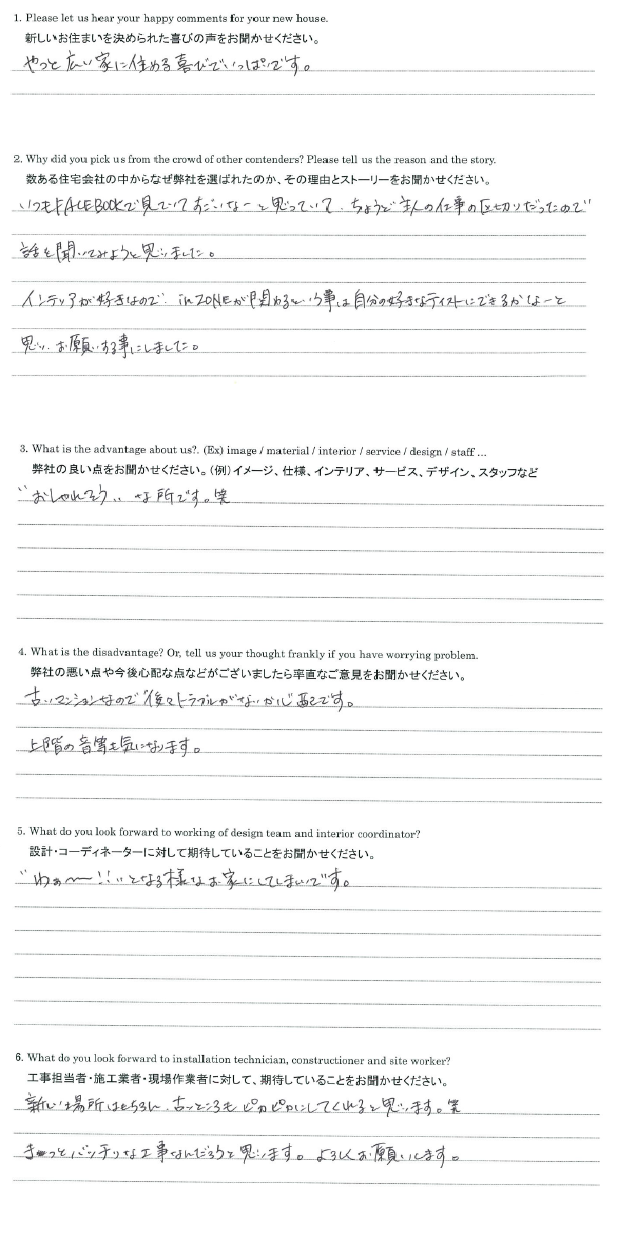 1. Please let us hear your happy comments for your new house.
新しいお住まいを決められた喜びの声をお聞かせください。
やっと広い家に住める喜びでいっぱいです。
2. Why did you pick us from the crowd of other contenders? Please tell us the reason and the story.
数ある住宅会社の中からなぜ弊社を選ばれたのか、その理由とストーリーをお聞かせください。
いつもFACEBOOKで見ていてすごいなーと思っていて、ちょうど主人の仕事の区切りだったので
話を聞いてみようと思いました。
インテリアが好きなので、inZONEが関わるという事は自分の好きなテイストにできるかなーと
思い、お願いする事にしました。
3. What is the advantage about us?. (Ex) image / material / interior / service / design / staff ...
弊社の良い点をお聞かせください。(例)イメージ、仕様、インテリア、サービス、デザイン、スタッフなど
"おしゃれそう" な所です。笑
4. What is the disadvantage? Or, tell us your thought frankly if you have worrying problem.
弊社の悪い点や今後心配な点などがございましたら率直なご意見をお聞かせください。
古いマンションなので後々トラブルがないか心配です。
上階の音等も気になります。
5. What do you look forward to working of design team and interior coordinator?
設計・コーディネーターに対して期待していることをお聞かせください。
"わぁ〜!!"となる様なお家にしてほしいです。
6. What do you look forward to installation technician, constructioner and site worker?
工事担当者・施工業者・現場作業者に対して、期待していることをお聞かせください。
新しい場所はもちろん、古いところもピカピカにしてくれると思います。笑
きっとバッチリな工事なんだろうと思います。よろしくお願いします。